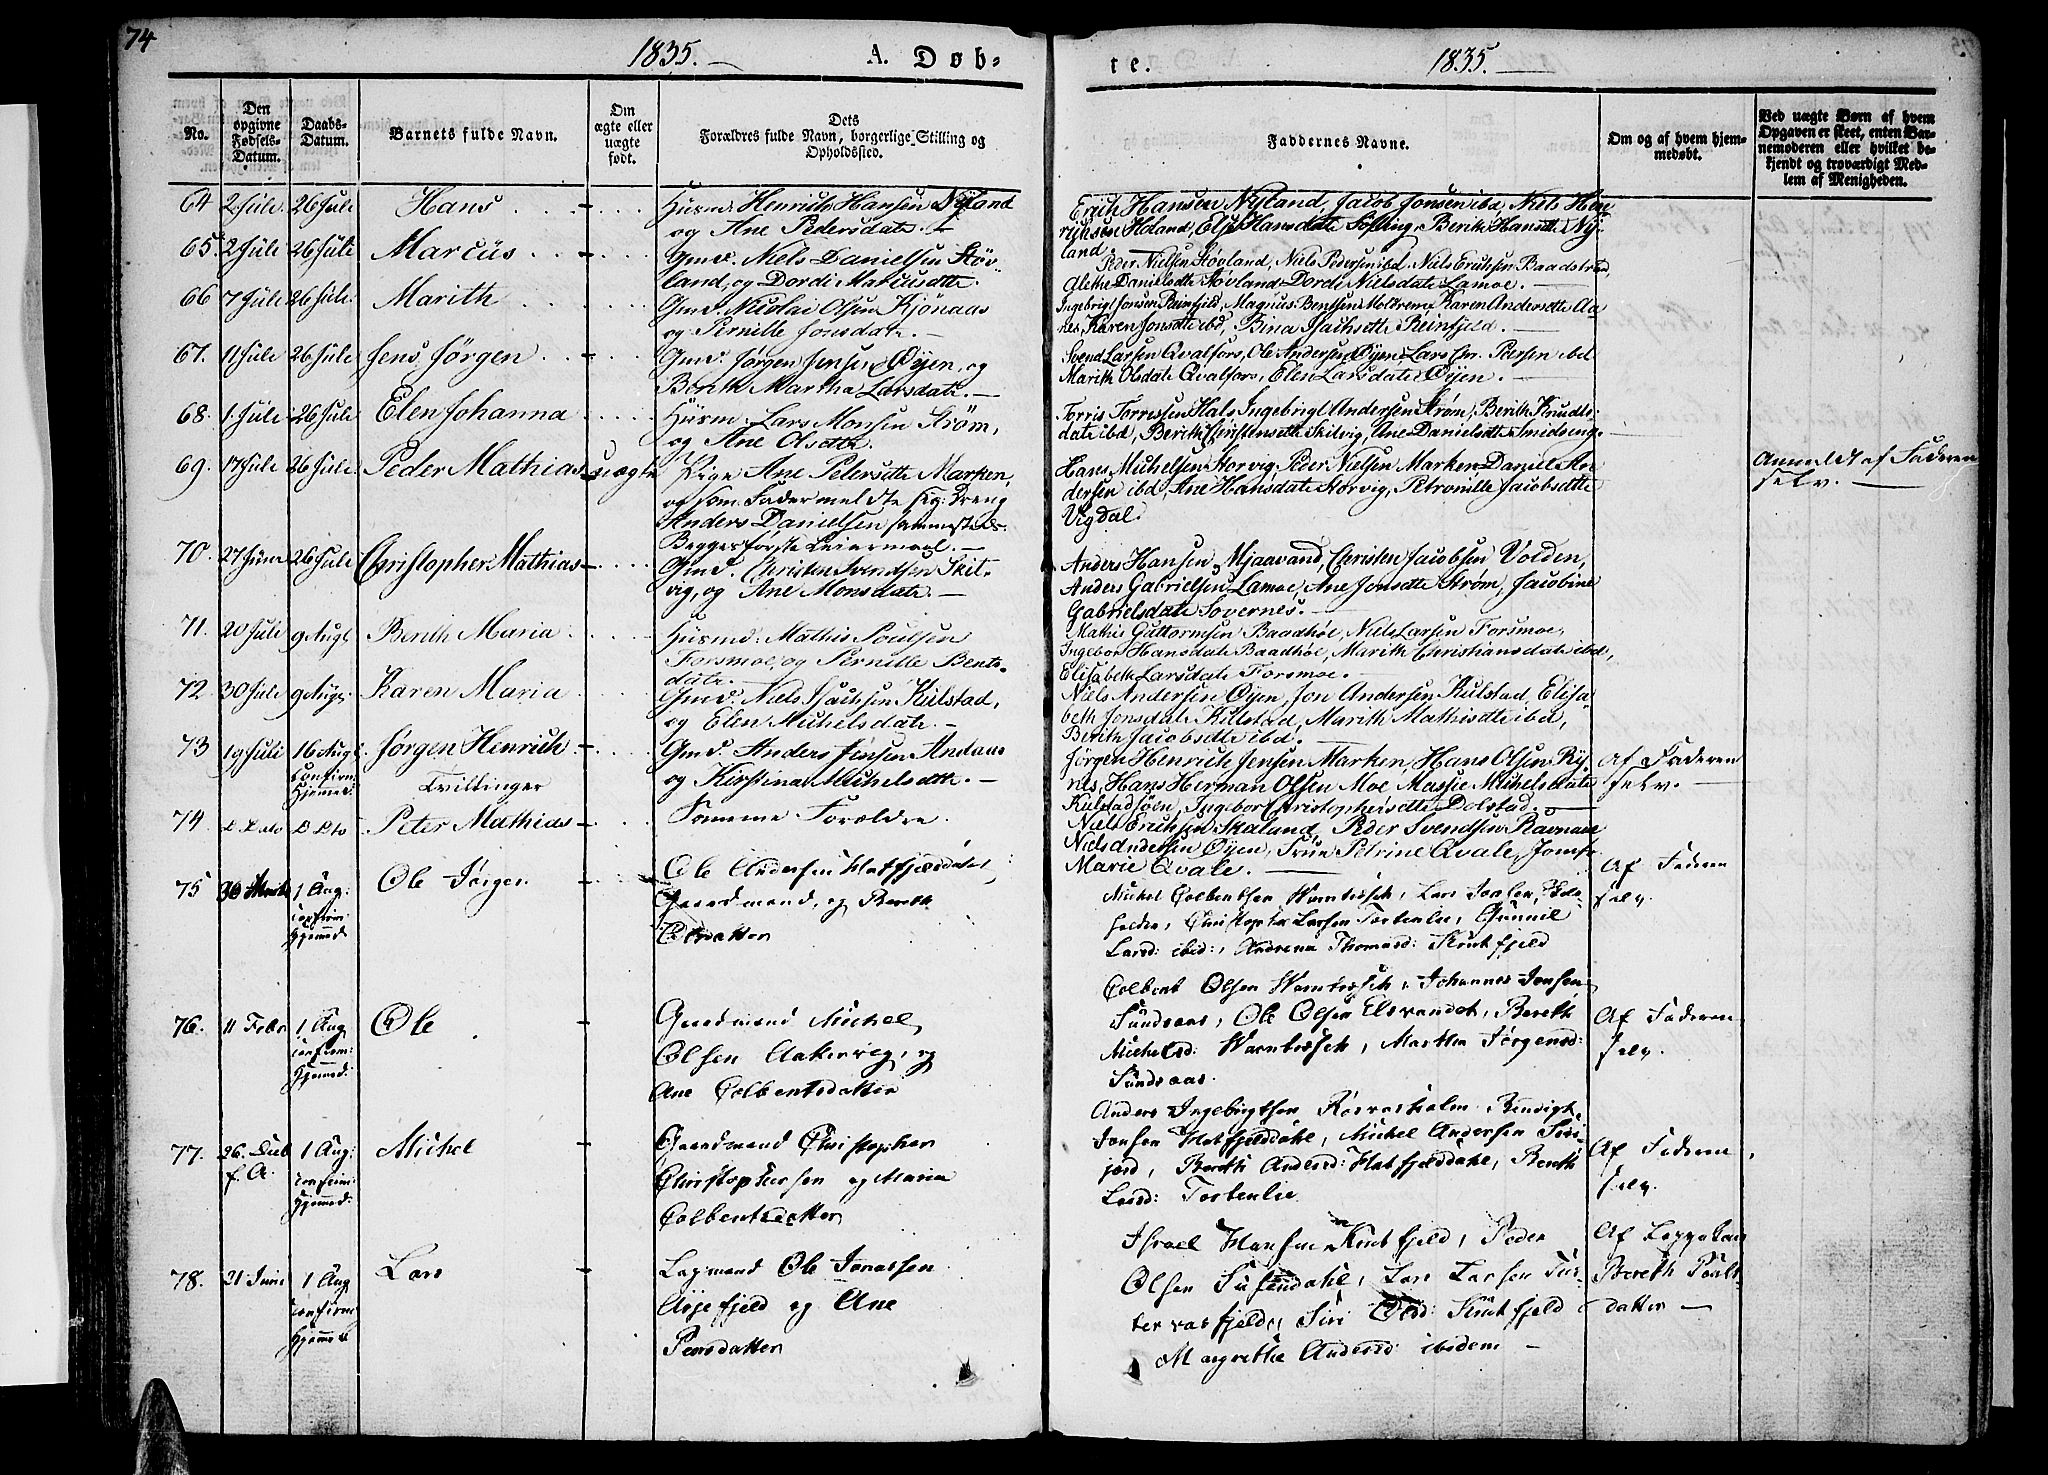 74
1835.
A. Døb-
te.
1835.
No.
Den opgivne Fødsels-Datum.
Daabs-Datum.
Barnets fulde Navn.
Om ægte eller uægte født.
Dets Forældres fulde Navn, borgerlige Stilling og Opholdssted.
Faddernes Navne.
Om og af hvem hjemmedøbt.
Ved uægte Børn af hvem Opgaven er skeet, enten Barnemoderen eller hvilket bekjendt og troværdigt Medlem af Menigheden.
64 2 Julie 26 Julie Hans
Husmd. Henrich Hansen Nyland
og Ane Pedersdatr.
Erich Hansen Nyland, Jacob Jonsen ibd, Niels Hen-
richsen Holand, Else Hansdatr Søfting, Berith Hansdtr Ny-
land
65. 2 Julie 26 Julie Marcus
Gmd. Niels Danielsen Støv-
land, og Dordi Marcusdtr.
Peder Nielsen Støvland, Niels Pedersen ibd. Niels Erichsen Baadstrøm,
Alethe Danielsdtr Støvland Dorde Nielsdatr Lamoe.
66 7 Julie 26 Julie. Marith
Gmd. Nicolai Olsen Kjønaas
og Pernille Jonsdatr.
Ingebrigt Jonsen Reinfjeld, Magnus Bentsen Karen Andersdtr Aa-
nes, Karen Jonsdtr ibd, Bina Isachsdtr Reinfjeld.
67. 11 Julie 26 Julie Jens Jørgen
Gmd. Jørgen Jensen Øyen, og
Berith Martha Larsdatr.
Svend Larsen Qvalfors, Ole Andersen Øyen, Lars Chr. Pedersen ibd
Marith Olsdatr Qvalfors, Elen Larsdatr Øyen.
68. 1. Julie 26 Julie Elen Johanna
Husm. Lars Monsen Strøm,
og Ane Olsdtr.
Torris Torressen Hals Ingebrigt Andersen Strøm, Berith Knuds-
datr ibd, Berith Christensdtr Skilvig, Ane Danielsdtr Smidseng.
69. 17 Julie 26 Julie. Peder Mathias uægte
Pige Ane Petersdtr Marken,
og som Fader meldte sig: Dreng
Anders Danielsen sammesteds.
Begges første Leiermaal.
Hans Michelsen Storvig, Peder Nielsen Marken Daniel An-
dersen ibd, Ane Hansdatr Storvig, Petronille Jacobsdtr
Vigdal.
Anmeldt af Faderen
selv.
70. 27 Junii 26 Julie Christopher Mathias
Gmd. Christen Svendsen Skil-
vig, og Ane Monsdatr.
Anders Hansen Mjaavand, Christen Jacobsen Volden,
Anders Gabrielsen Lamoe, Ane Jonsdtr Strøm, Jacobine
Gabrielsdatr Sovernes.
71. 20 Julie 9 Augt Berith Maria
Husmd: Mathis Poulsen
Forsmoe, og Pernille Bents-
datr.
Mathis Guttormsen Baadhøe, Niels Larsen Forsmoe,
Ingebor Hansdatr Baadhøe, Marith Christiansdatr ibd,
Elisabeth Larsdatr Forsmoe.
72. 30 Julie 9 Aug. Karen Maria
Gmd. Niels Isachsen Kulstad,
og Elen Michelsdatr.
Niels Andersen Øyen, Jon Andersen Kulstad, Elisa-
beth Jonsdatr Kulstad, Marith Mathisdtr ibd,
Berith Jacobsdtr ibd.
73 19 Juli 16 Augt. Confirm: Hjemmed: Jørgen Henrich
Tvillinger
Gmd. Anders Jensen Andaas
og Kirstina Michelsdtr.
Jørgen Henrich Jensen Marken, Hans Olsen Ry-
nes, Hans Herman Olsen Moe Massie Michelsdatr
Kulstadsjøen, Ingebor Christophersdtr Dolstad.
Af Faderen
selv.
74. D Dito D Dto Peter Mathias
Samme Forældre
Niels Erichsen Skaland, Peder Svendsen Ravnaa
Niels Andersen Øyen, Frue Petrine Qvale, Jomfr
Marie Qvale.
Af Faderen
selv.
75 30 1 Aug: confirm: Hjemmed Ole Jørgen
Ole Andersen Hatfjelddalen,
Gaardmand, og Bereth
Olsdatter
Michel Colbentsen Varntresch, Lars
Christopher Larsen Tortenlie, Gunnil
Larsd: ibid:, Andrena Thomasd: Krutfjeld
76. 11 Febr 1 Aug confirm: Hjemmed: Ole
Gaardmand Michel
Olsen Aakervig, og
Ane Colbentsdatter
Colbent Olsen Varntresch, Johannes Jonsen
Sundsaas, Ole Olsen Elsvandet, Bereth
Michelsd: Varntresch, Martha Jørgensd:
Sundsaas.
Af Faderen
selv.
77. 26. f.A. 1 Aug: confirm: Hjemmed: Michel
Gaardmand Christopher
Christophersen og Maria
Colbentsdatter
Anders Ingebrigtsen Røsvasholm Bendigt
Jonsen Hatfjelddahl, Michel Andersen Siri-
jord, Bereth Andersd: Hatfjelddahl, Bereth
Larsd: Tortenlie
Af Faderen
selv.
78. 21 Junii 1 Aug confirm Hjemmed Lars
Lapmand Ole Jonassen
og Ane
Peersdatter
Israel Hansen Krutfjeld, Peder
Olsen Susendahl, Lars Larsen Fus-
tervasfjeld, Siri Olsd: Krutfjeld
Margrethe Andersd: ibidem
Af Lappekone
Bereth Pouls-
datter